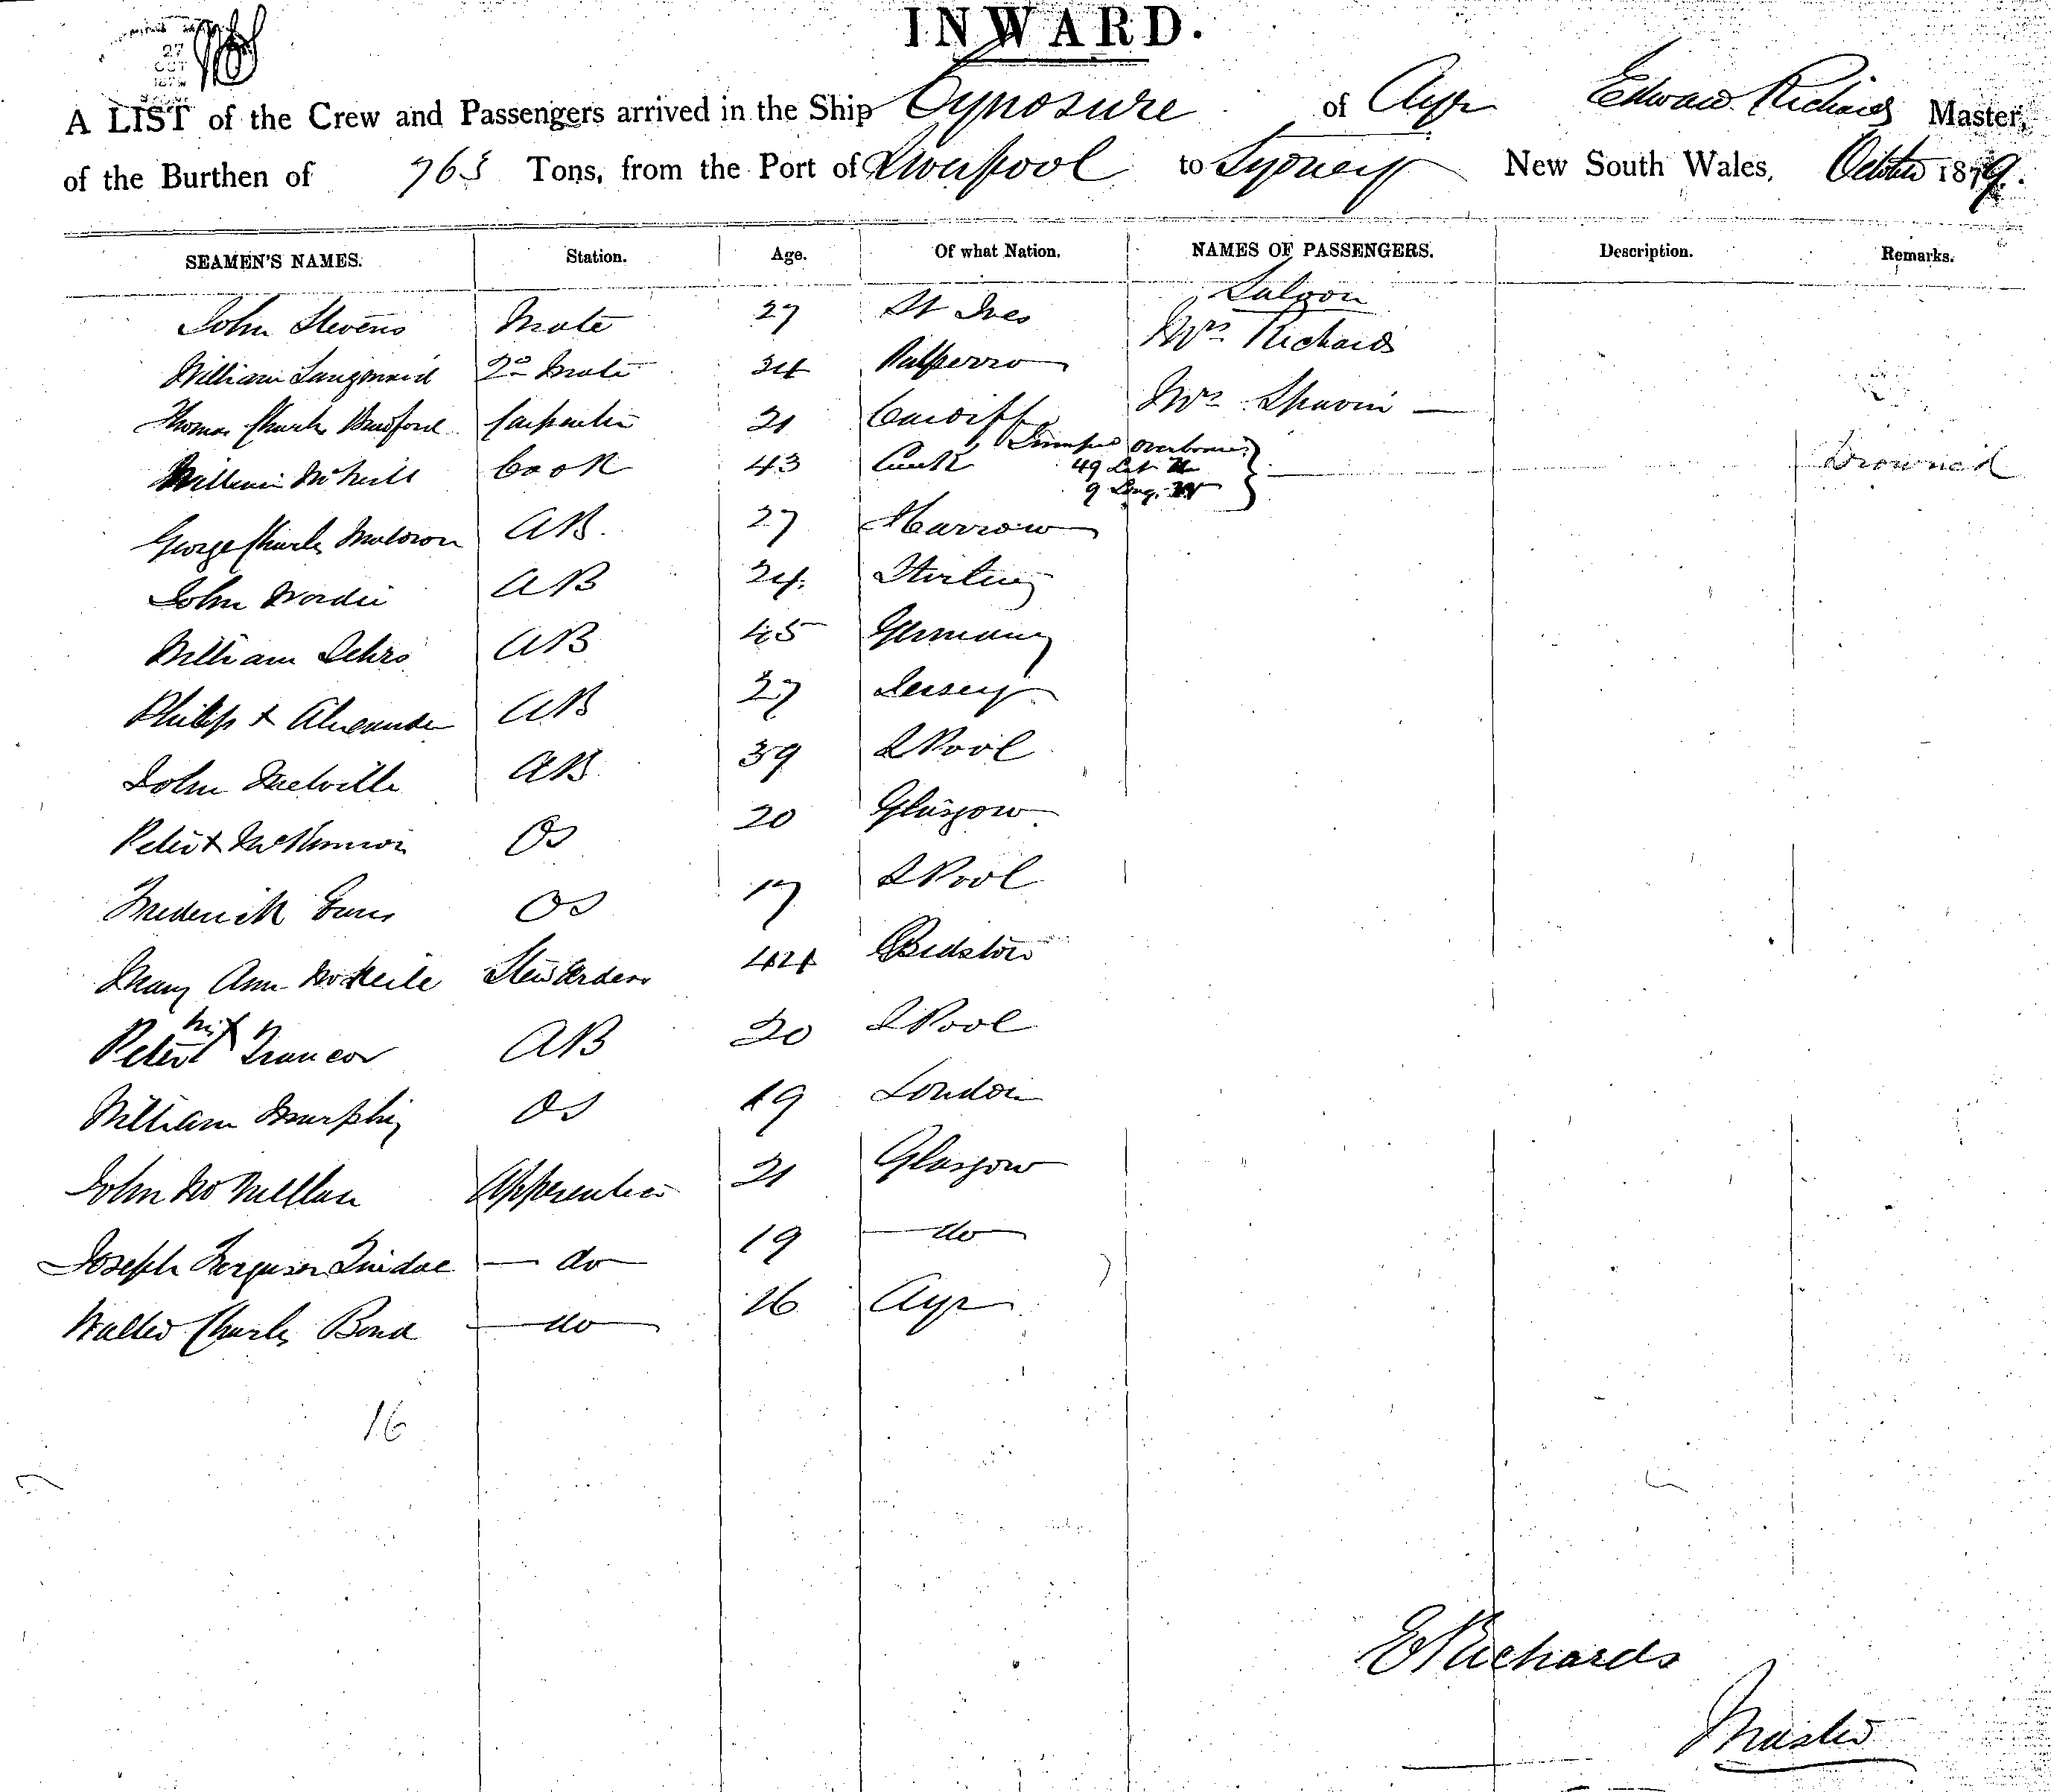 27
OCT
INWARD.
A LIST of the Crew and Passengers arrived in the Ship Cynosure of Ayr Edward Richards Master,
of the Burthen of 965 Tons, from the Port of Liverpool to Sydney New South Wales, October 1879.
SEAMEN'S NAMES. Station. Age. Of what Nation. NAMES OF PASSENGERS. Description. Remarks.
Saloon
John Stevens Mate 27 St Ives Mrs Richards
William Langmaid 2nd Mate 34 Polperro
Mrs Spavin
Thomas Charles Bradford Carpenter 21 Cardiff
Jumped overboard
William McNeill Cook 43 49 Lat N Drowned
9 Long. W
George Charles AB. 27 Harrow
John AB 24. Stirling
William Gehrs AB 45 Germany
Philip x Alexander AB 27 Jersey
John Melville AB 39 LPool
Peter x McKinnon OS 20 Glasgow
Frederick OS 17 LPool
Mary Ann McNeile Stewardess 44 Bidston
his
Peter x AB 20 LPool
William Murphy OS 19 London
John McMillan Apprentice 21 Glasgow
Joseph Ferguson do 19 do
Walter Charles Bond do 16 Ayr
16
E Richards
Master